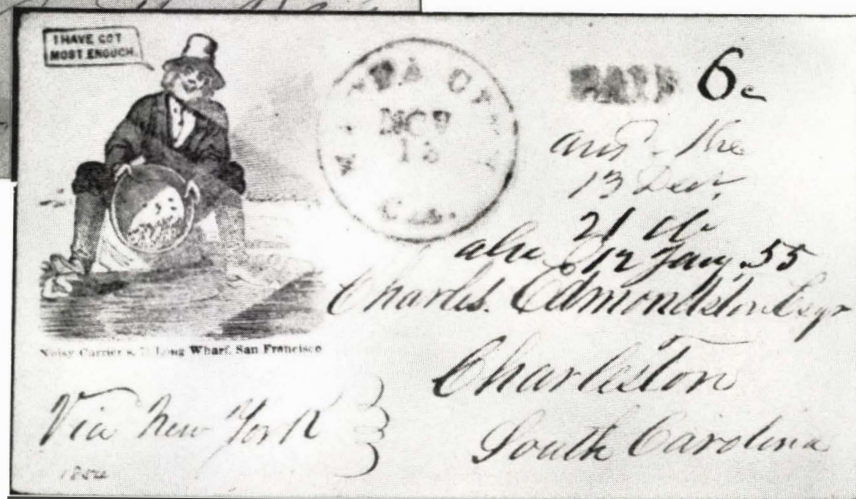 I HAVE GOT
MOST ENOUGH.
CITY
NOV
13
Cal.
PAID 6c
ansd the
13 Decr.
21 do
also 12 Jany. 55
Charles. Edmondston Esqr
Charleston
South Carolina
Noisy Carrier's, Long Wharf, San Francisco
Via New York
1854